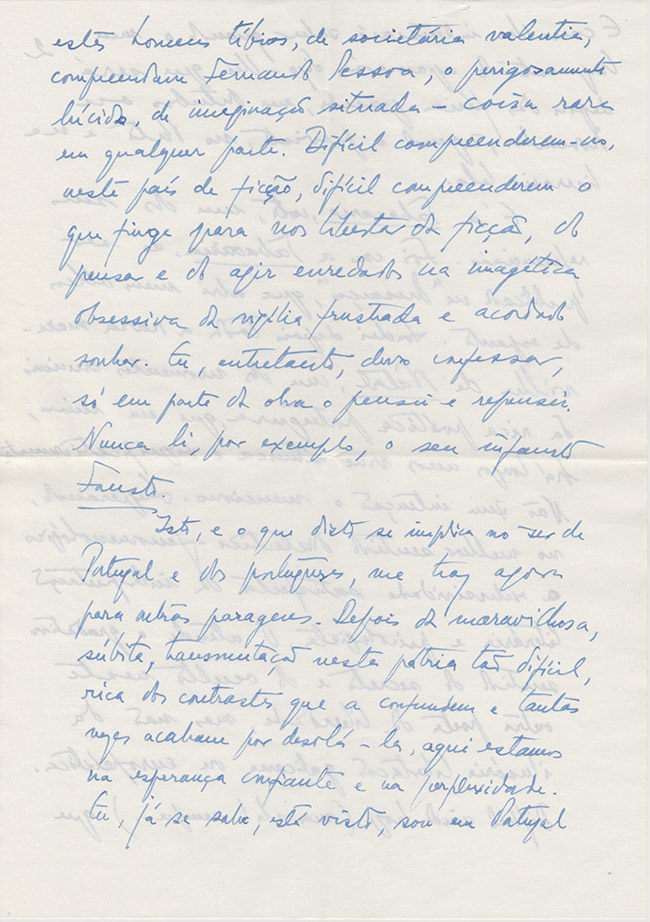 estes homens tíbios, de societária valentia,
compreendam Fernando Pessoa, o perigosamente
lúcido, de imaginação situada – coisa rara
em qualquer parte. Difícil compreenderem-no,
neste país de ficção, difícil compreenderem o
que finge para nos libertar da ficção, do
pensar e do agir enredados na imagética
obsessiva da vigília frustrada e acordado
sonhar. Eu, entretanto, devo confessar,
só em parte da obra o pensei e repensei.
Nunca li, por exemplo, o seu infausto
Fausto.
Isto, e o que disto se implica no ser de
Portugal e dos portugueses, me traz agora
para outras paragens. Depois da maravilhosa,
súbita, transmutação nesta pátria tão difícil,
rica dos contrastes que a confundem e tantas
vezes acabam por desolá-la, aqui estamos
na esperança confiante e na perplexidade.
Eu, já se sabe, está visto, sou em Portugal